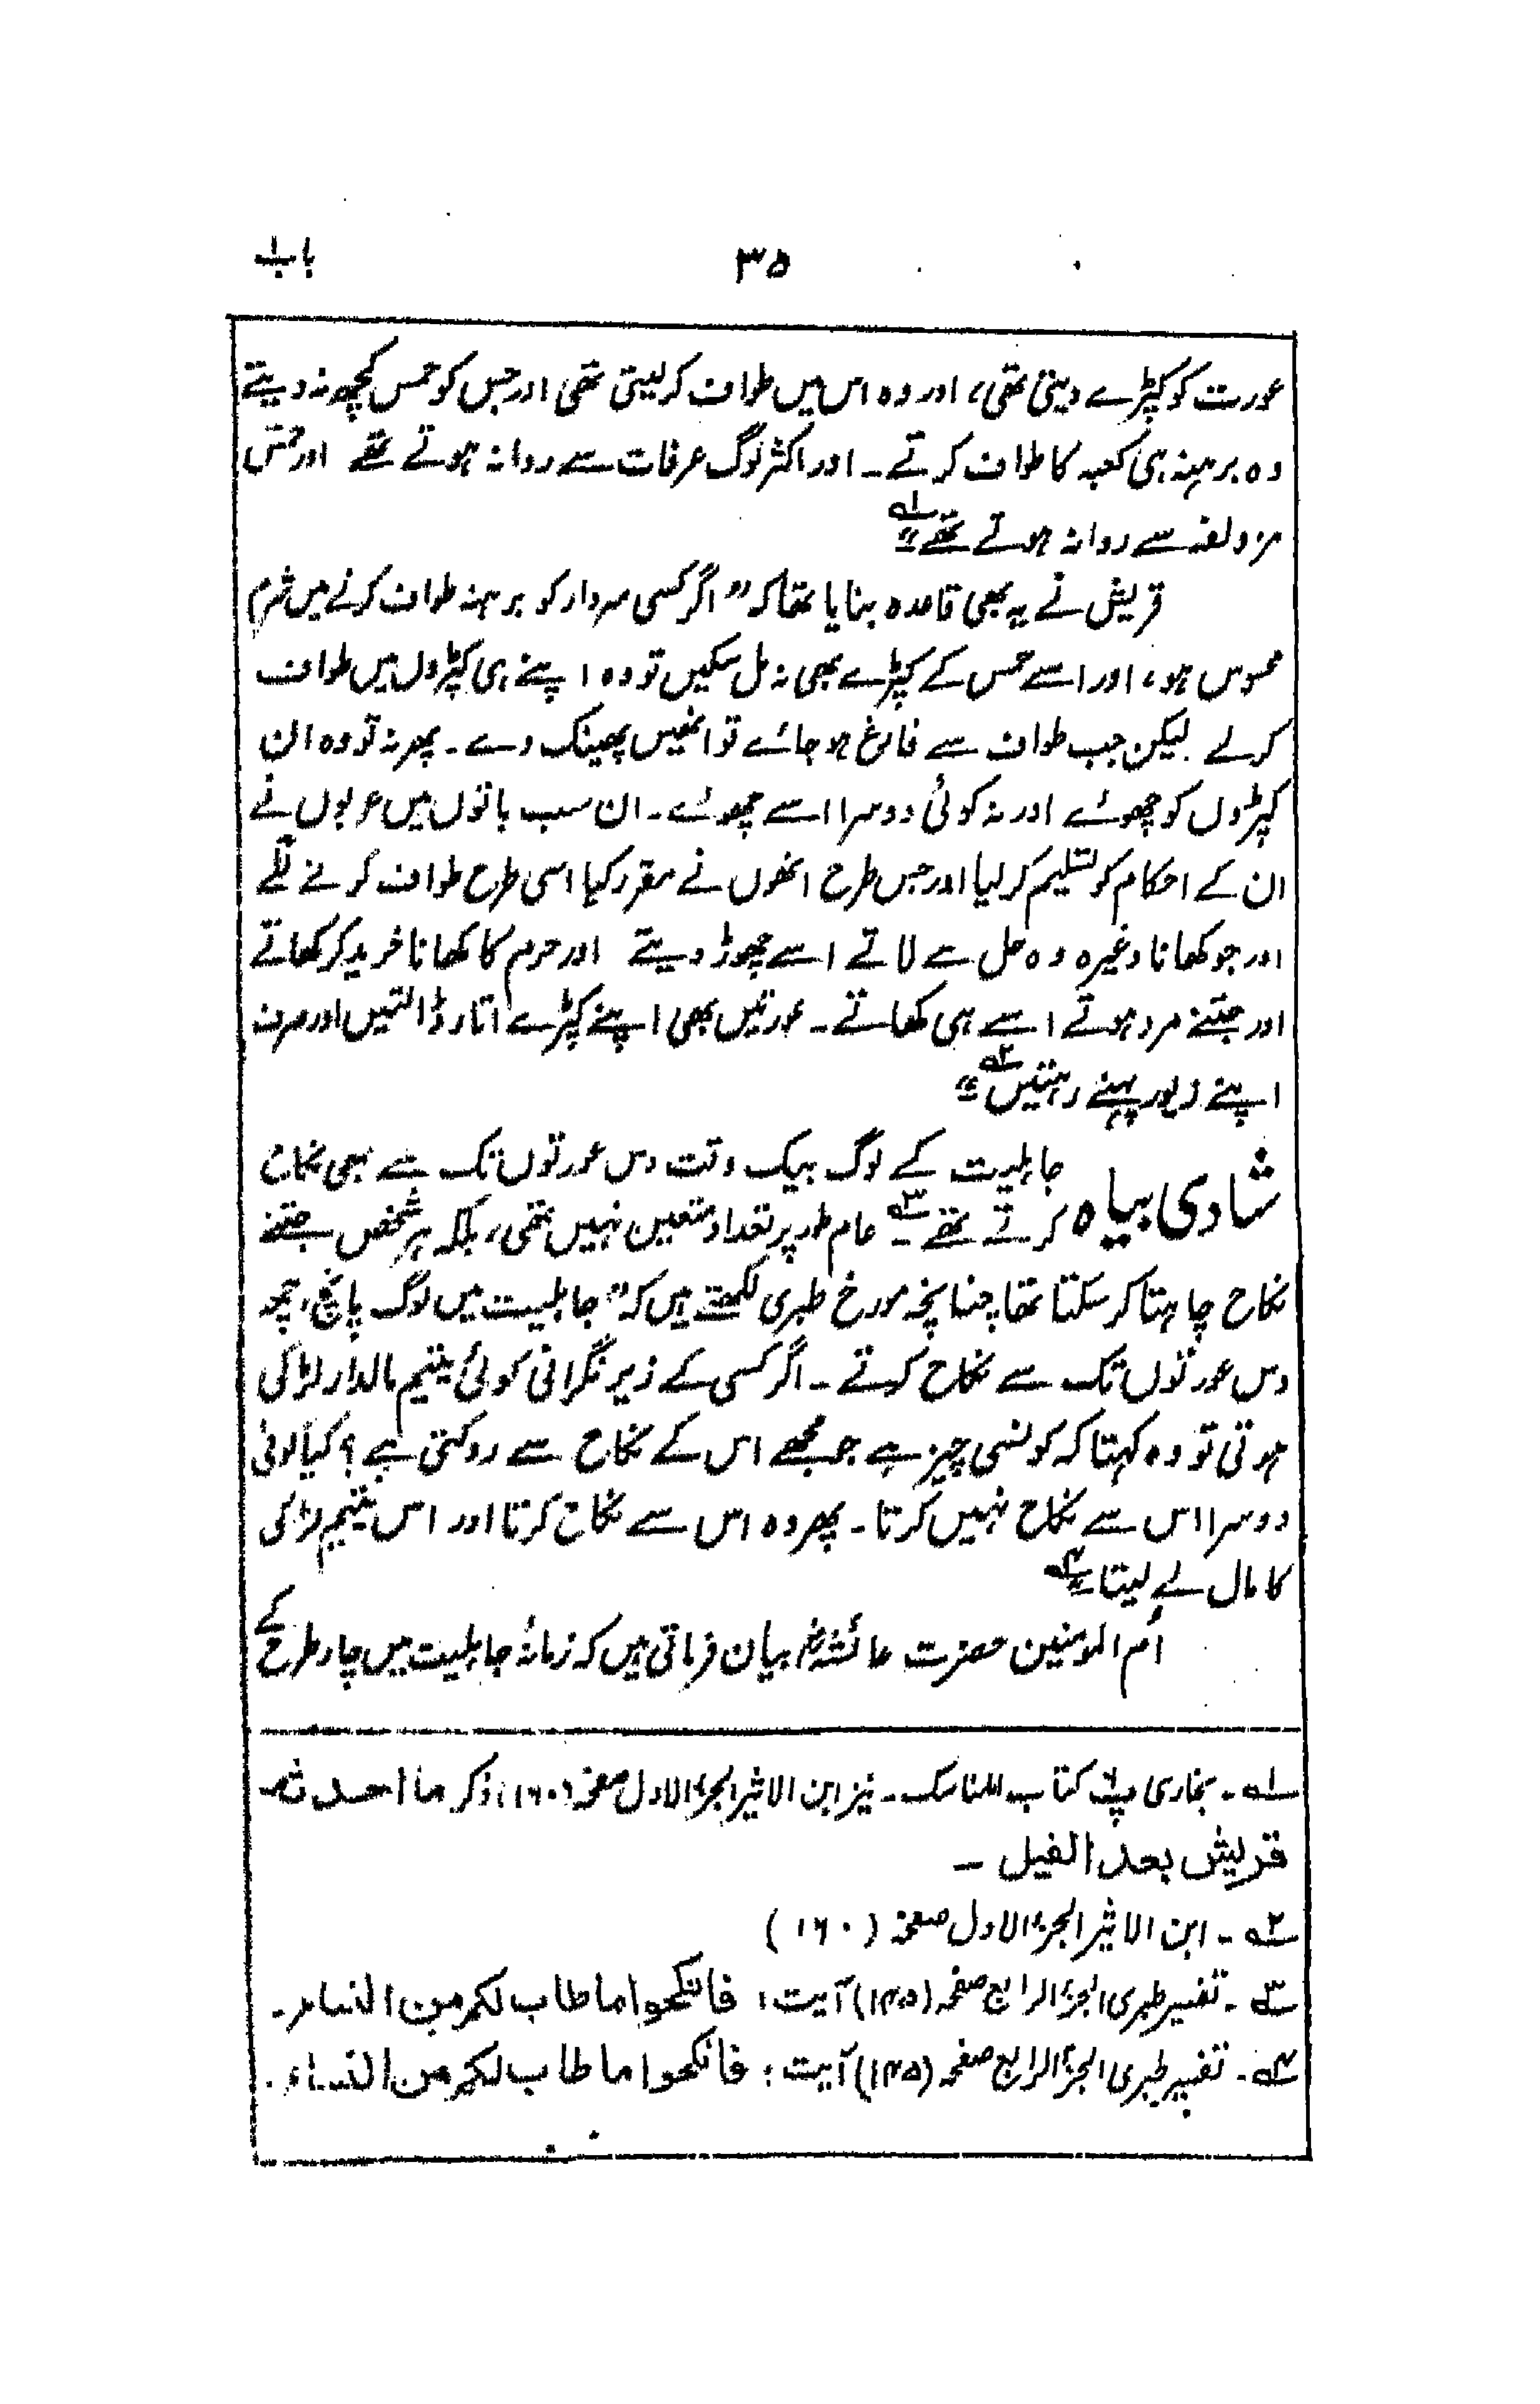 باب۱
۳۵
عورت کو کپڑے دیتی تھی، اور وہ اس میں طواف کرلیتی تھی اور جس کو حمس کچھ نہ دیتے
وہ برہنہ ہی کعبہ کا طواف کرتے۔ اور اکثر لوگ عرفات سے روانہ ہوتے تھے اور حمس
مزدلفہ سے روانہ ہوتے تھے"۱؎
قریش نے یہ بھی قاعدہ بنایا تھا کہ "اگر کسی سردار کو برہنہ طواف کرنے میں شرم
محسوس ہو، اور اسے حمس کے کپڑے بھی نہ مل سکیں تو وہ اپنے ہی کپڑوں میں طواف
کرلے۔ لیکن جب طواف سے فارغ ہو جائے تو انھیں پھینک دے۔ پھر نہ تو وہ ان
کپڑوں کو چھوئے اور نہ کوئی دوسرا اسے چھوئے۔ ان سب باتوں میں عربوں نے
ان کے احکام کو تسلیم کرلیا اور جس طرح انھوں نے مقرر کیا اسی طرح طواف کرنے لگے
اور جو کھانا وغیرہ وہ حل سے لاتے اسے چھوڑ دیتے اور حرم کا کھانا خرید کر کھاتے
اور جتنے مرد ہوتے اسے ہی کھاتے۔ عورتیں بھی اپنے کپڑے اتار ڈالتیں اور صرف
اپنے زیور پہنے رہتیں"۲؎
شادی بیاہ جاہلیت کے لوگ بیک وقت دس عورتوں تک سے بھی نکاح
کرتے تھے۳؎۔ عام طور پر تعداد متعین نہیں تھی، بلکہ ہر شخص جتنے
نکاح چاہتا کر سکتا تھا چنانچہ مورخ طبری لکھتے ہیں کہ "جاہلیت میں لوگ پانچ، چھ
دس عورتوں تک سے نکاح کرتے۔ اگر کسی کے زیر نگرانی کوئی یتیم مالدار لڑکی
ہوتی تو وہ کہتا کہ کونسی چیز ہے جو مجھے اس کے نکاح سے روکتی ہے؟ کیا کوئی
دوسرا اس سے نکاح نہیں کرتا۔ پھر وہ اس سے نکاح کرتا اور اس یتیم لڑکی
کا مال لے لیتا"۴؎
اُم المومنین حضرت عائشہؓ بیان فرماتی ہیں کہ زمانۂ جاہلیت میں چار طرح کے
۱؎۔ بخاری پ کتاب المناسک۔ نیز ابن الاثیر الجزء الاول صفحہ (۱۶۰) ذکر ما احدثه
قریش بعد الفیل۔
۲؎۔ ابن الاثیر الجزء الاول صفحہ (۱۶۰)
۳؎۔ تفسیر طبری الجزء الرابع صفحہ (۱۴۵) آیت: فانکحوا ما طاب لکم من النساء۔
۴؎۔ تفسیر طبری الجزء الرابع صفحہ (۱۴۵) آیت: فانکحوا ما طاب لکم من النساء۔